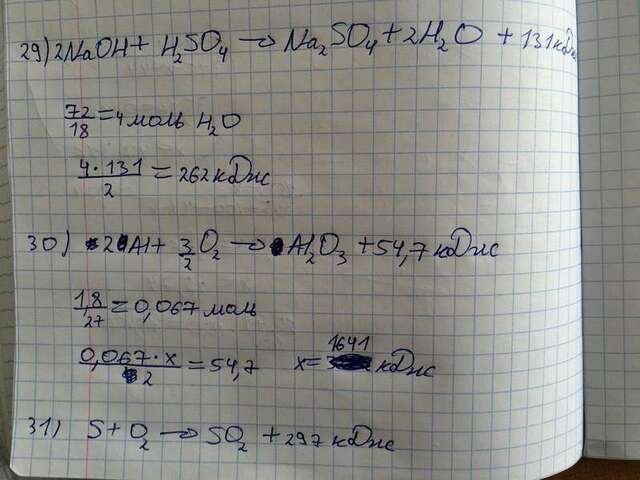 29) 2NaOH + H₂SO₄ → Na₂SO₄ + 2H₂O + 131 кДж
72/18 = 4 моль H₂O
4·131/2 = 262 кДж
30) 2Al + 3/2 O₂ → Al₂O₃ + 54,7 кДж
1,8/27 = 0,067 моль
0,067·x/2 = 54,7 x = 1641 кДж
31) S + O₂ → SO₂ + 297 кДж